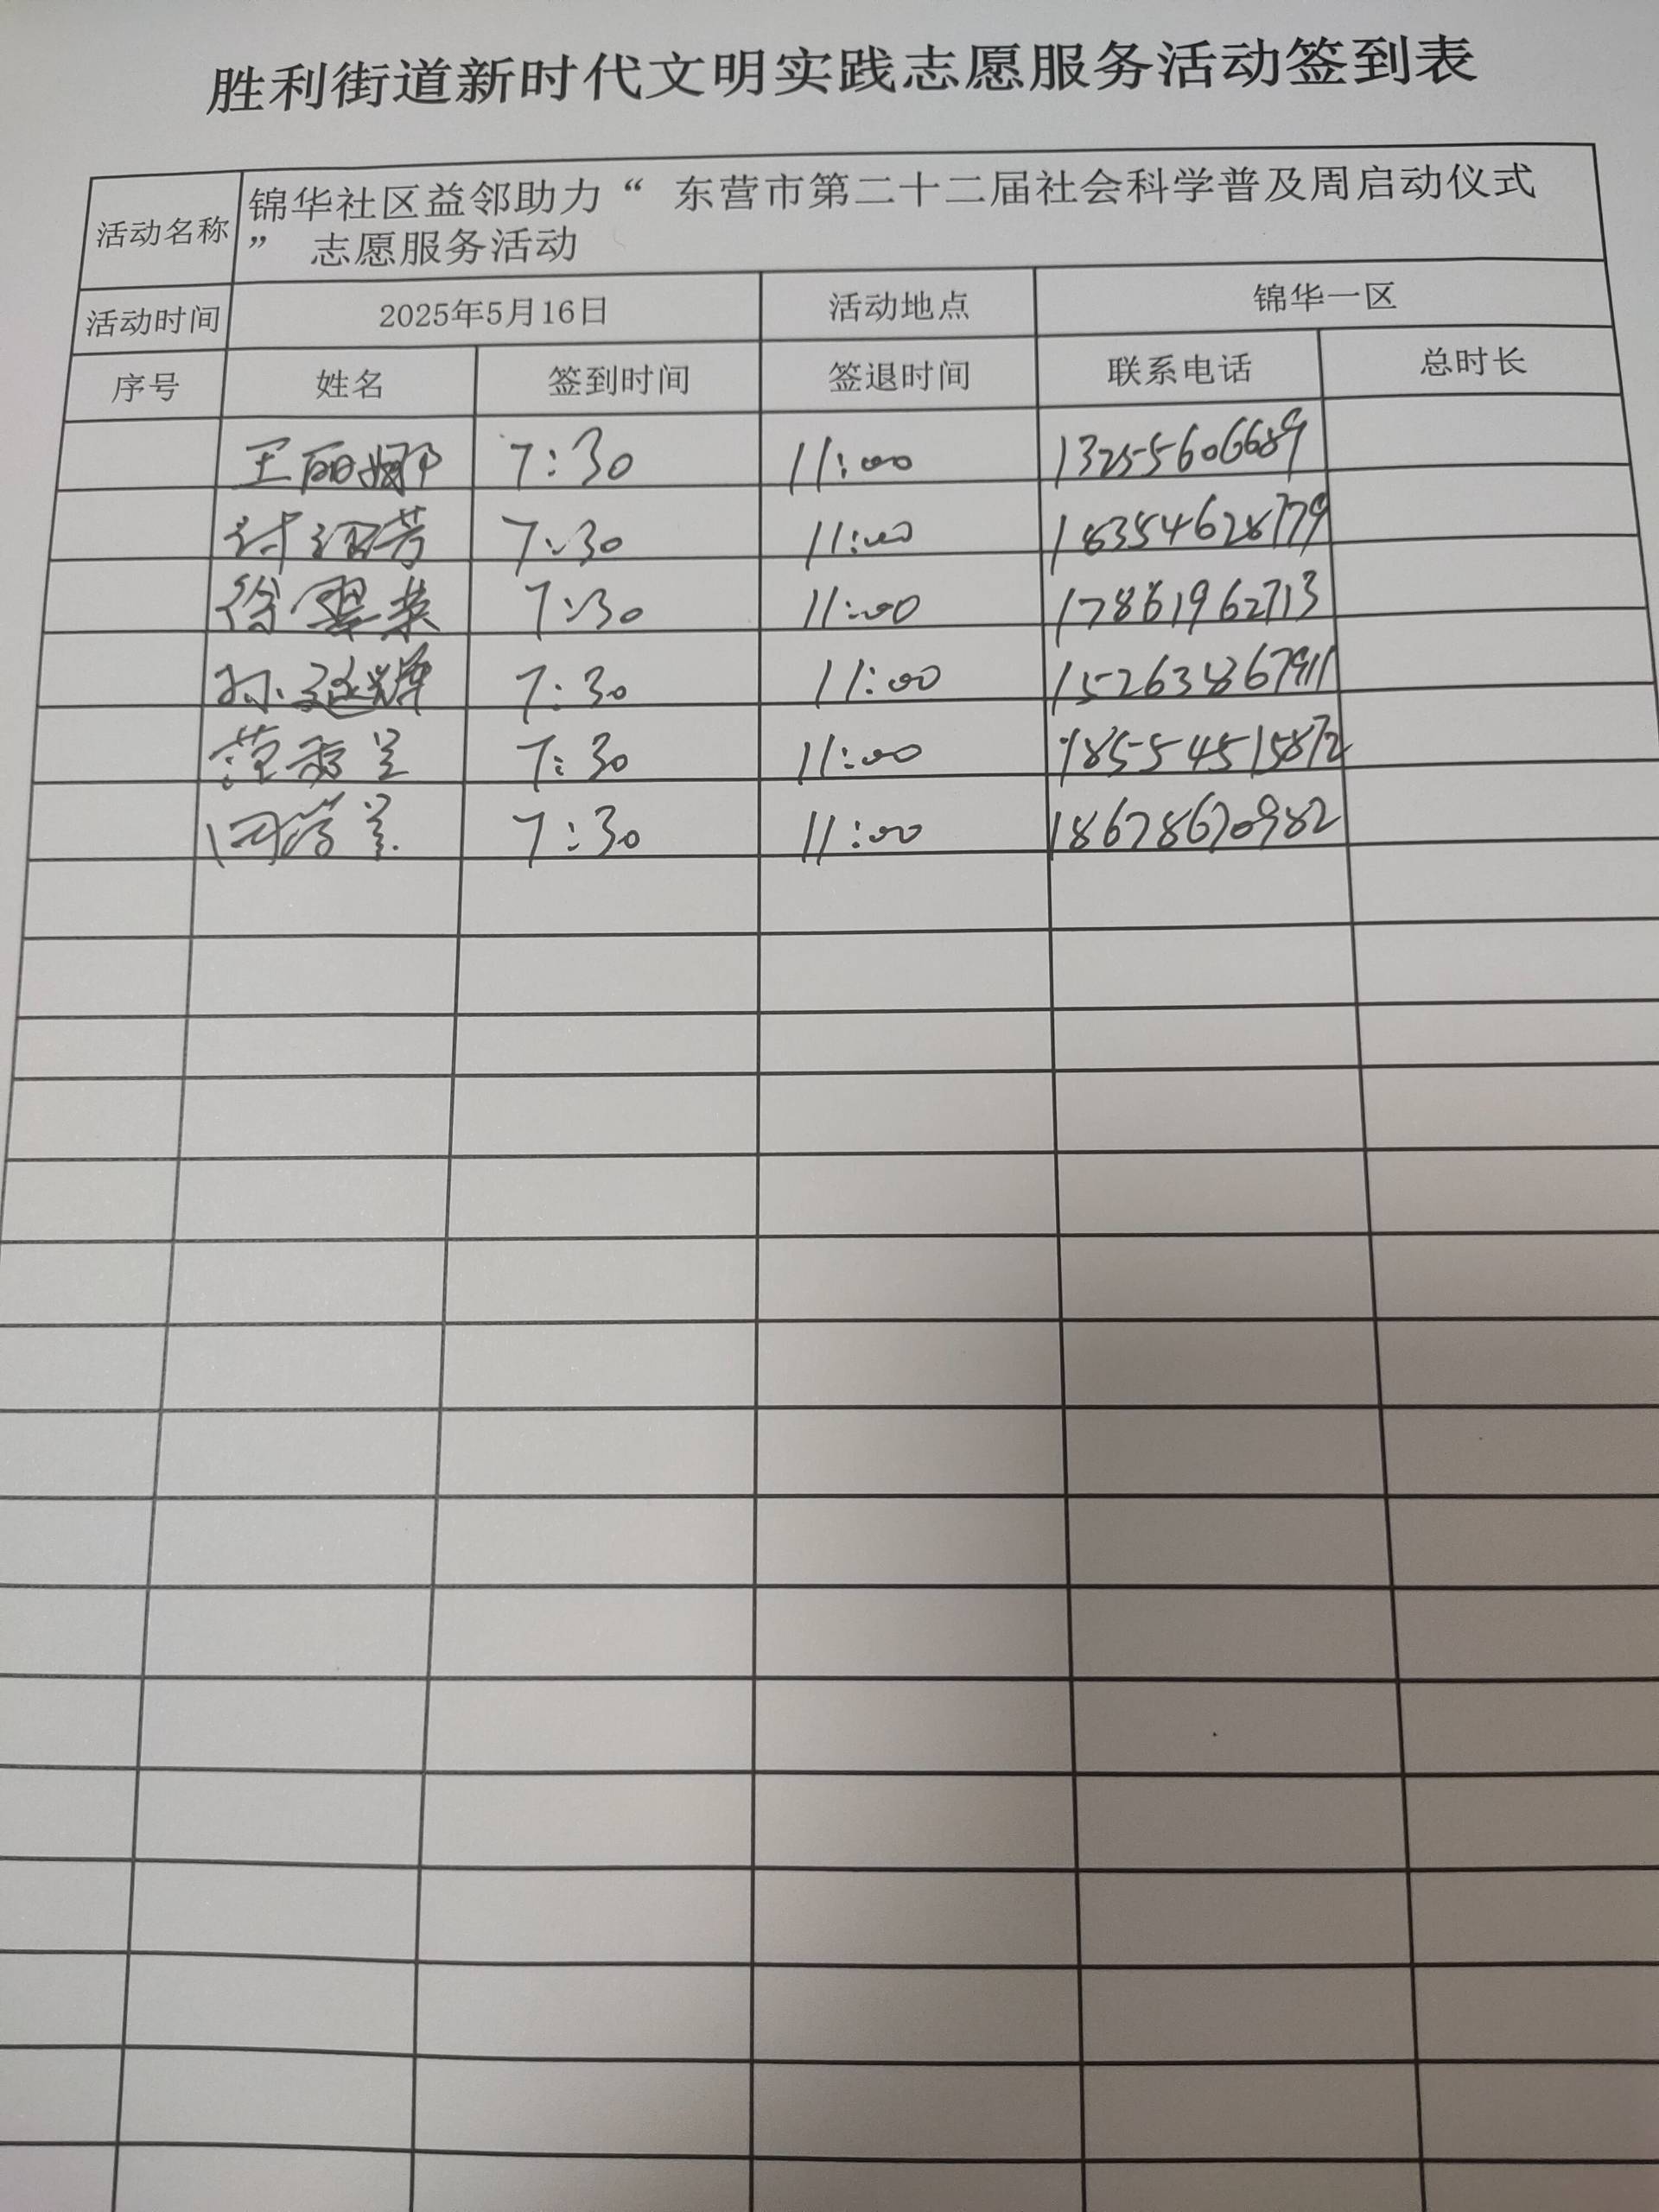 胜利街道新时代文明实践志愿服务活动签到表
活动名称 锦华社区益邻助力“ 东营市第二十二届社会科学普及周启动仪式
” 志愿服务活动
活动时间 2025年5月16日 活动地点 锦华一区
序号 姓名 签到时间 签退时间 联系电话 总时长
王丽娜 7:30 11:00 13255606689
7:30 11:00 18354628779
徐翠荣 7:30 11:00 17861962713
孙延辉 7:30 11:00 15263867911
范秀兰 7:30 11:00 18554515872
闫学兰 7:30 11:00 18678670982